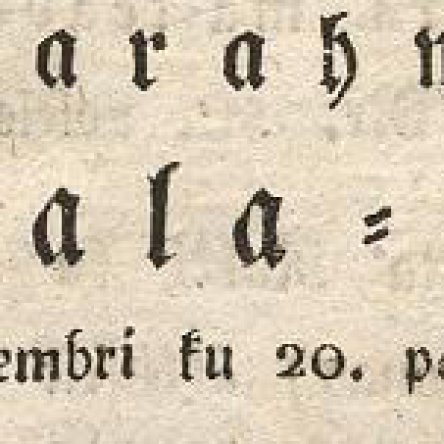 a r a h n
a l a =
embri ku 20. pä